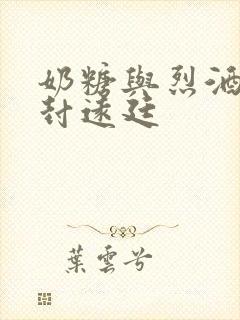 奶糖與烈酒
封遠廷
葉雲兮